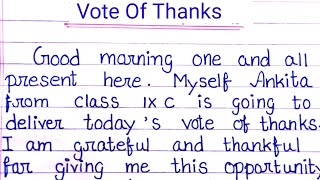 Vote Of Thanks
Good marning one and all
present here. Myself Ankita
from class IX C is going to
deliver today's vote of thanks.
I am grateful and thankful
for giving me this opportunity